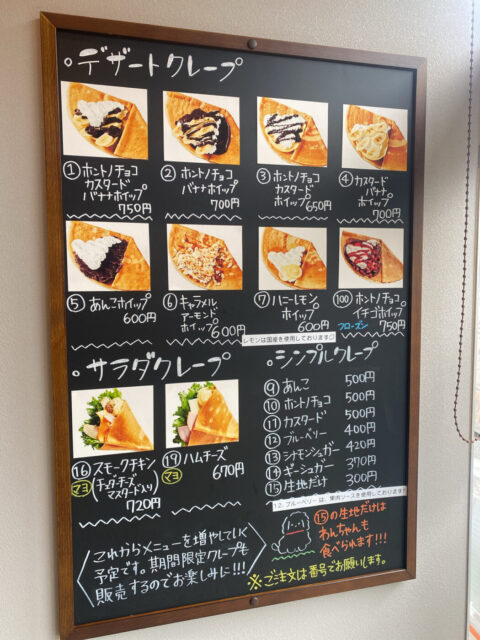 ○デザートクレープ
①ホントノチョコ
カスタード
バナナホイップ
750円
②ホントノチョコ
バナナホイップ
700円
③ホントノチョコ
カスタード
ホイップ
650円
④カスタード
バナナ
ホイップ
700円
⑤あんこホイップ
600円
⑥キャラメル
アーモンド
ホイップ
600円
⑦ハニーレモン
ホイップ
600円
レモンは国産を使用しております
100 ホントノチョコ
イチゴホイップ
フローズン 750円
○サラダクレープ
⑯スモークチキン
マヨ (チェダーチーズ
マスタード入り)
720円
⑲ハムチーズ
マヨ 670円
○シンプルクレープ
⑨あんこ 500円
⑩ホントノチョコ 500円
⑪カスタード 500円
⑫ブルーベリー 400円
⑬シナモンシュガー 420円
⑭ギーシュガー 370円
⑮生地だけ 300円
12.ブルーベリーは、果肉ソースを使用しております
⑮の生地だけは
わんちゃんも
食べられます!!!
これからメニューを増やしていく
予定です。期間限定クレープも
販売するのでお楽しみに!!!
※ご注文は番号でお願いします。